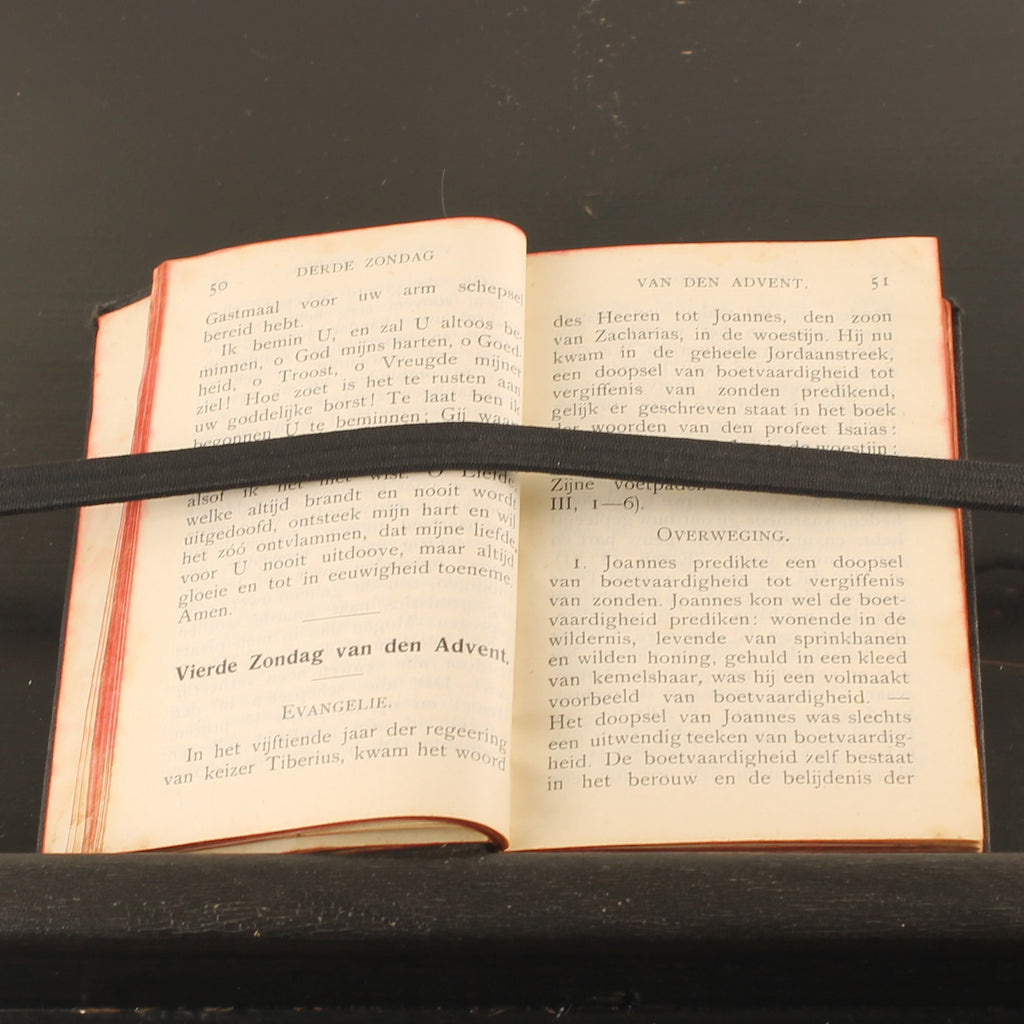 50
DERDE ZONDAG
Gastmaal voor uw arm schepsel
bereid hebt.
Ik bemin U, en zal U altoos be-
minnen, o God mijns harten, o Goed-
heid, o Troost, o Vreugde mijner
ziel! Hoe zoet is het te rusten aan
uw goddelijke borst! Te laat ben ik
begonnen U te beminnen; Gij waart
alsof ik het niet wist. O Liefde,
welke altijd brandt en nooit wordt
uitgedoofd, ontsteek mijn hart en wil
het zóó ontvlammen, dat mijne liefde
voor U nooit uitdoove, maar altijd
gloeie en tot in eeuwigheid toeneme.
Amen.
Vierde Zondag van den Advent.
EVANGELIE.
In het vijftiende jaar der regeering
van keizer Tiberius, kwam het woord
VAN DEN ADVENT.
51
des Heeren tot Joannes, den zoon
van Zacharias, in de woestijn. Hij nu
kwam in de geheele Jordaanstreek,
een doopsel van boetvaardigheid tot
vergiffenis van zonden predikend,
gelijk er geschreven staat in het boek
der woorden van den profeet Isaias:
in de woestijn:
Zijne voetpaden
III, 1—6).
OVERWEGING.
1. Joannes predikte een doopsel
van boetvaardigheid tot vergiffenis
van zonden. Joannes kon wel de boet-
vaardigheid prediken: wonende in de
wildernis, levende van sprinkhanen
en wilden honing, gehuld in een kleed
van kemelshaar, was hij een volmaakt
voorbeeld van boetvaardigheid. —
Het doopsel van Joannes was slechts
een uitwendig teeken van boetvaardig-
heid. De boetvaardigheid zelf bestaat
in het berouw en de belijdenis der